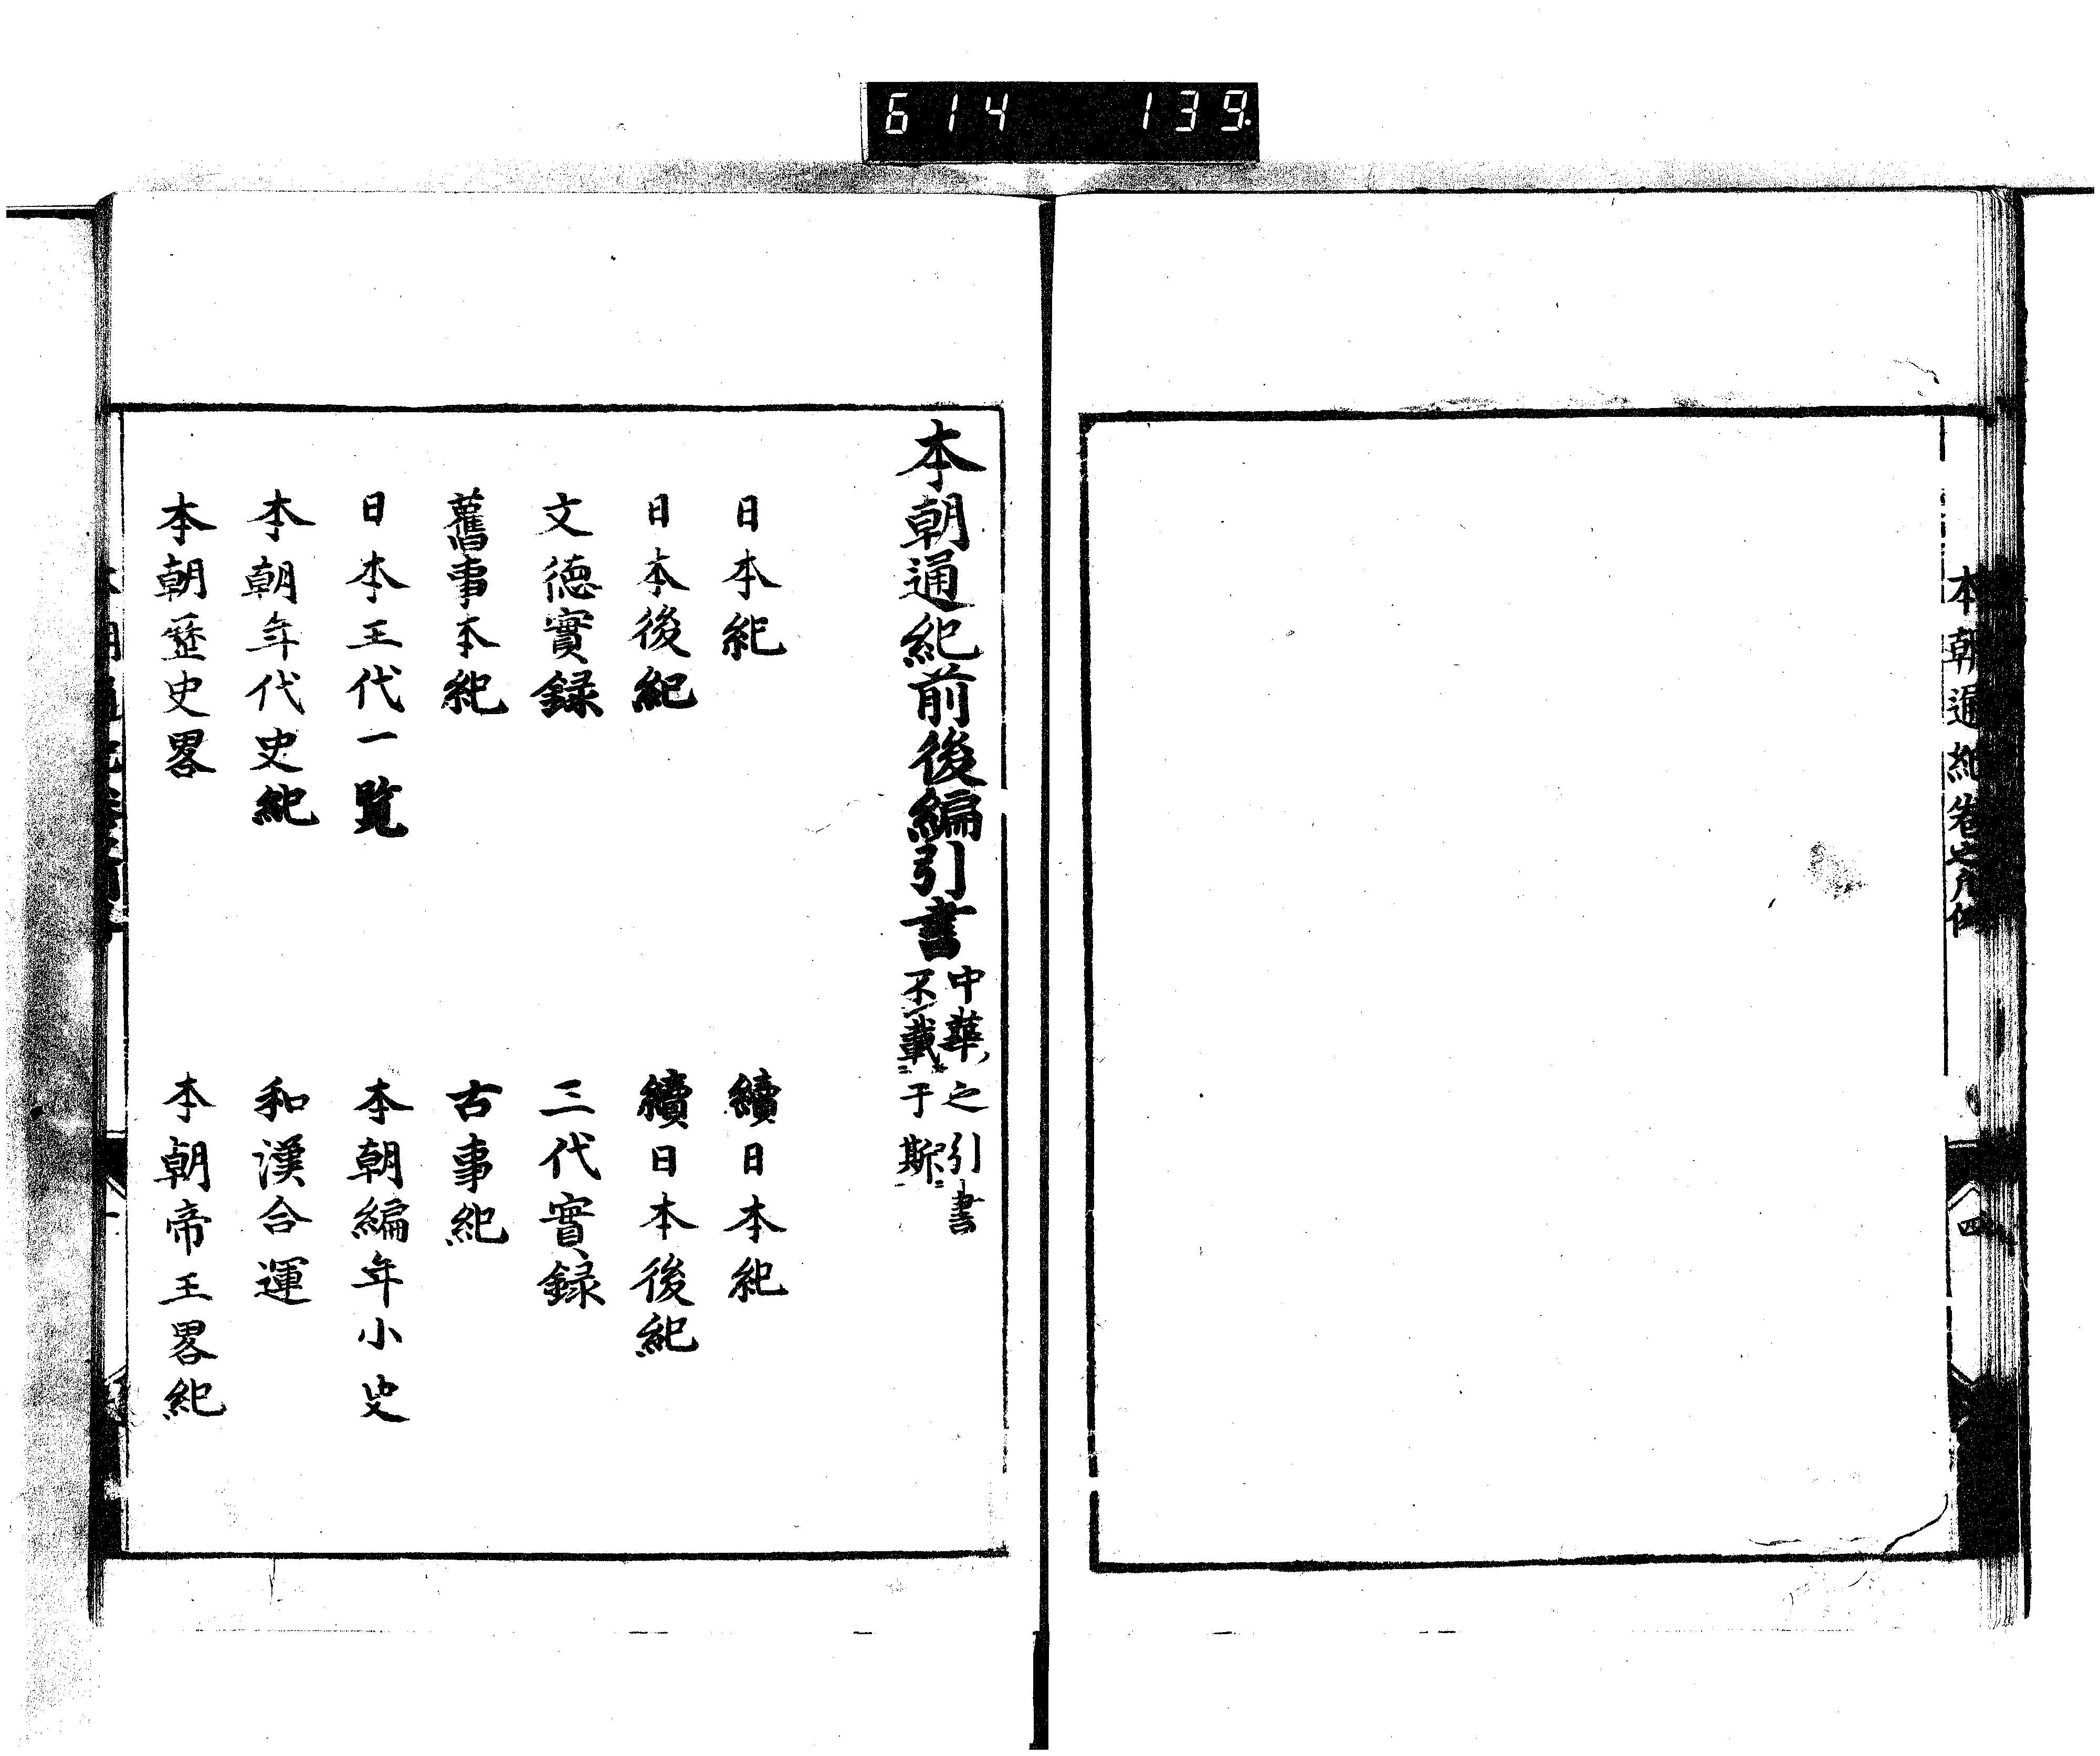 614 139
本朝通紀卷之凡例
四
本朝通紀前後編引書
中華之引書
不載于斯
日本紀
續日本紀
日本後紀
續日本後紀
文徳實録
三代實録
舊事本紀
古事紀
日本王代一覧
本朝編年小史
本朝年代史紀
和漢合運
本朝歷史畧
本朝帝王畧紀